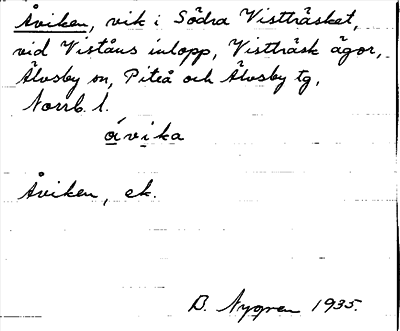 Åviken, vik i Södra Vistträsket,
vid Viståns inlopp, Vistträsk ägor,
Älvsby sn, Piteå och Älvsby tg,
Norrb. l.
åvika
Åviken, ek.
B. Nygren 1935.